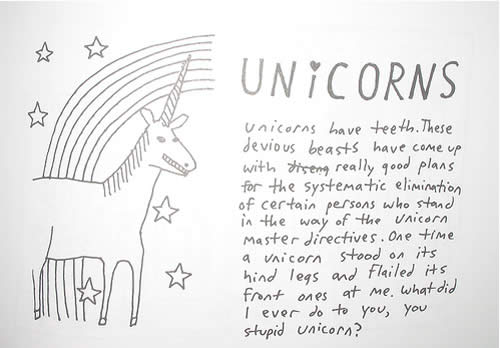 UNiCORNS
unicorns have teeth. These
devious beasts have come up
with really good plans
for the systematic elimination
of certain persons who stand
in the way of the unicorn
master directives. One time
a unicorn stood on its
hind legs and flailed its
front ones at me. What did
I ever do to you, you
stupid unicorn?